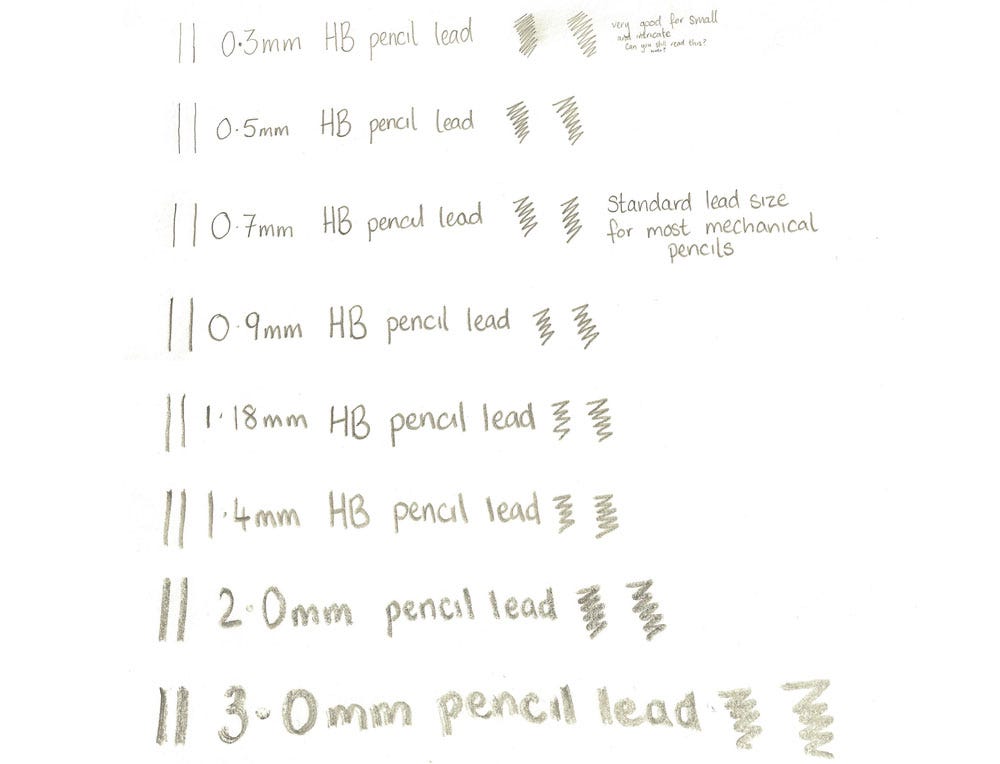 0.3mm HB pencil lead
very good for small
and intricate
Can you still read this?
0.5mm HB pencil lead
0.7mm HB pencil lead
Standard lead size
for most mechanical
pencils
0.9mm HB pencil lead
1.18mm HB pencil lead
1.4mm HB pencil lead
2.0mm pencil lead
3.0mm pencil lead